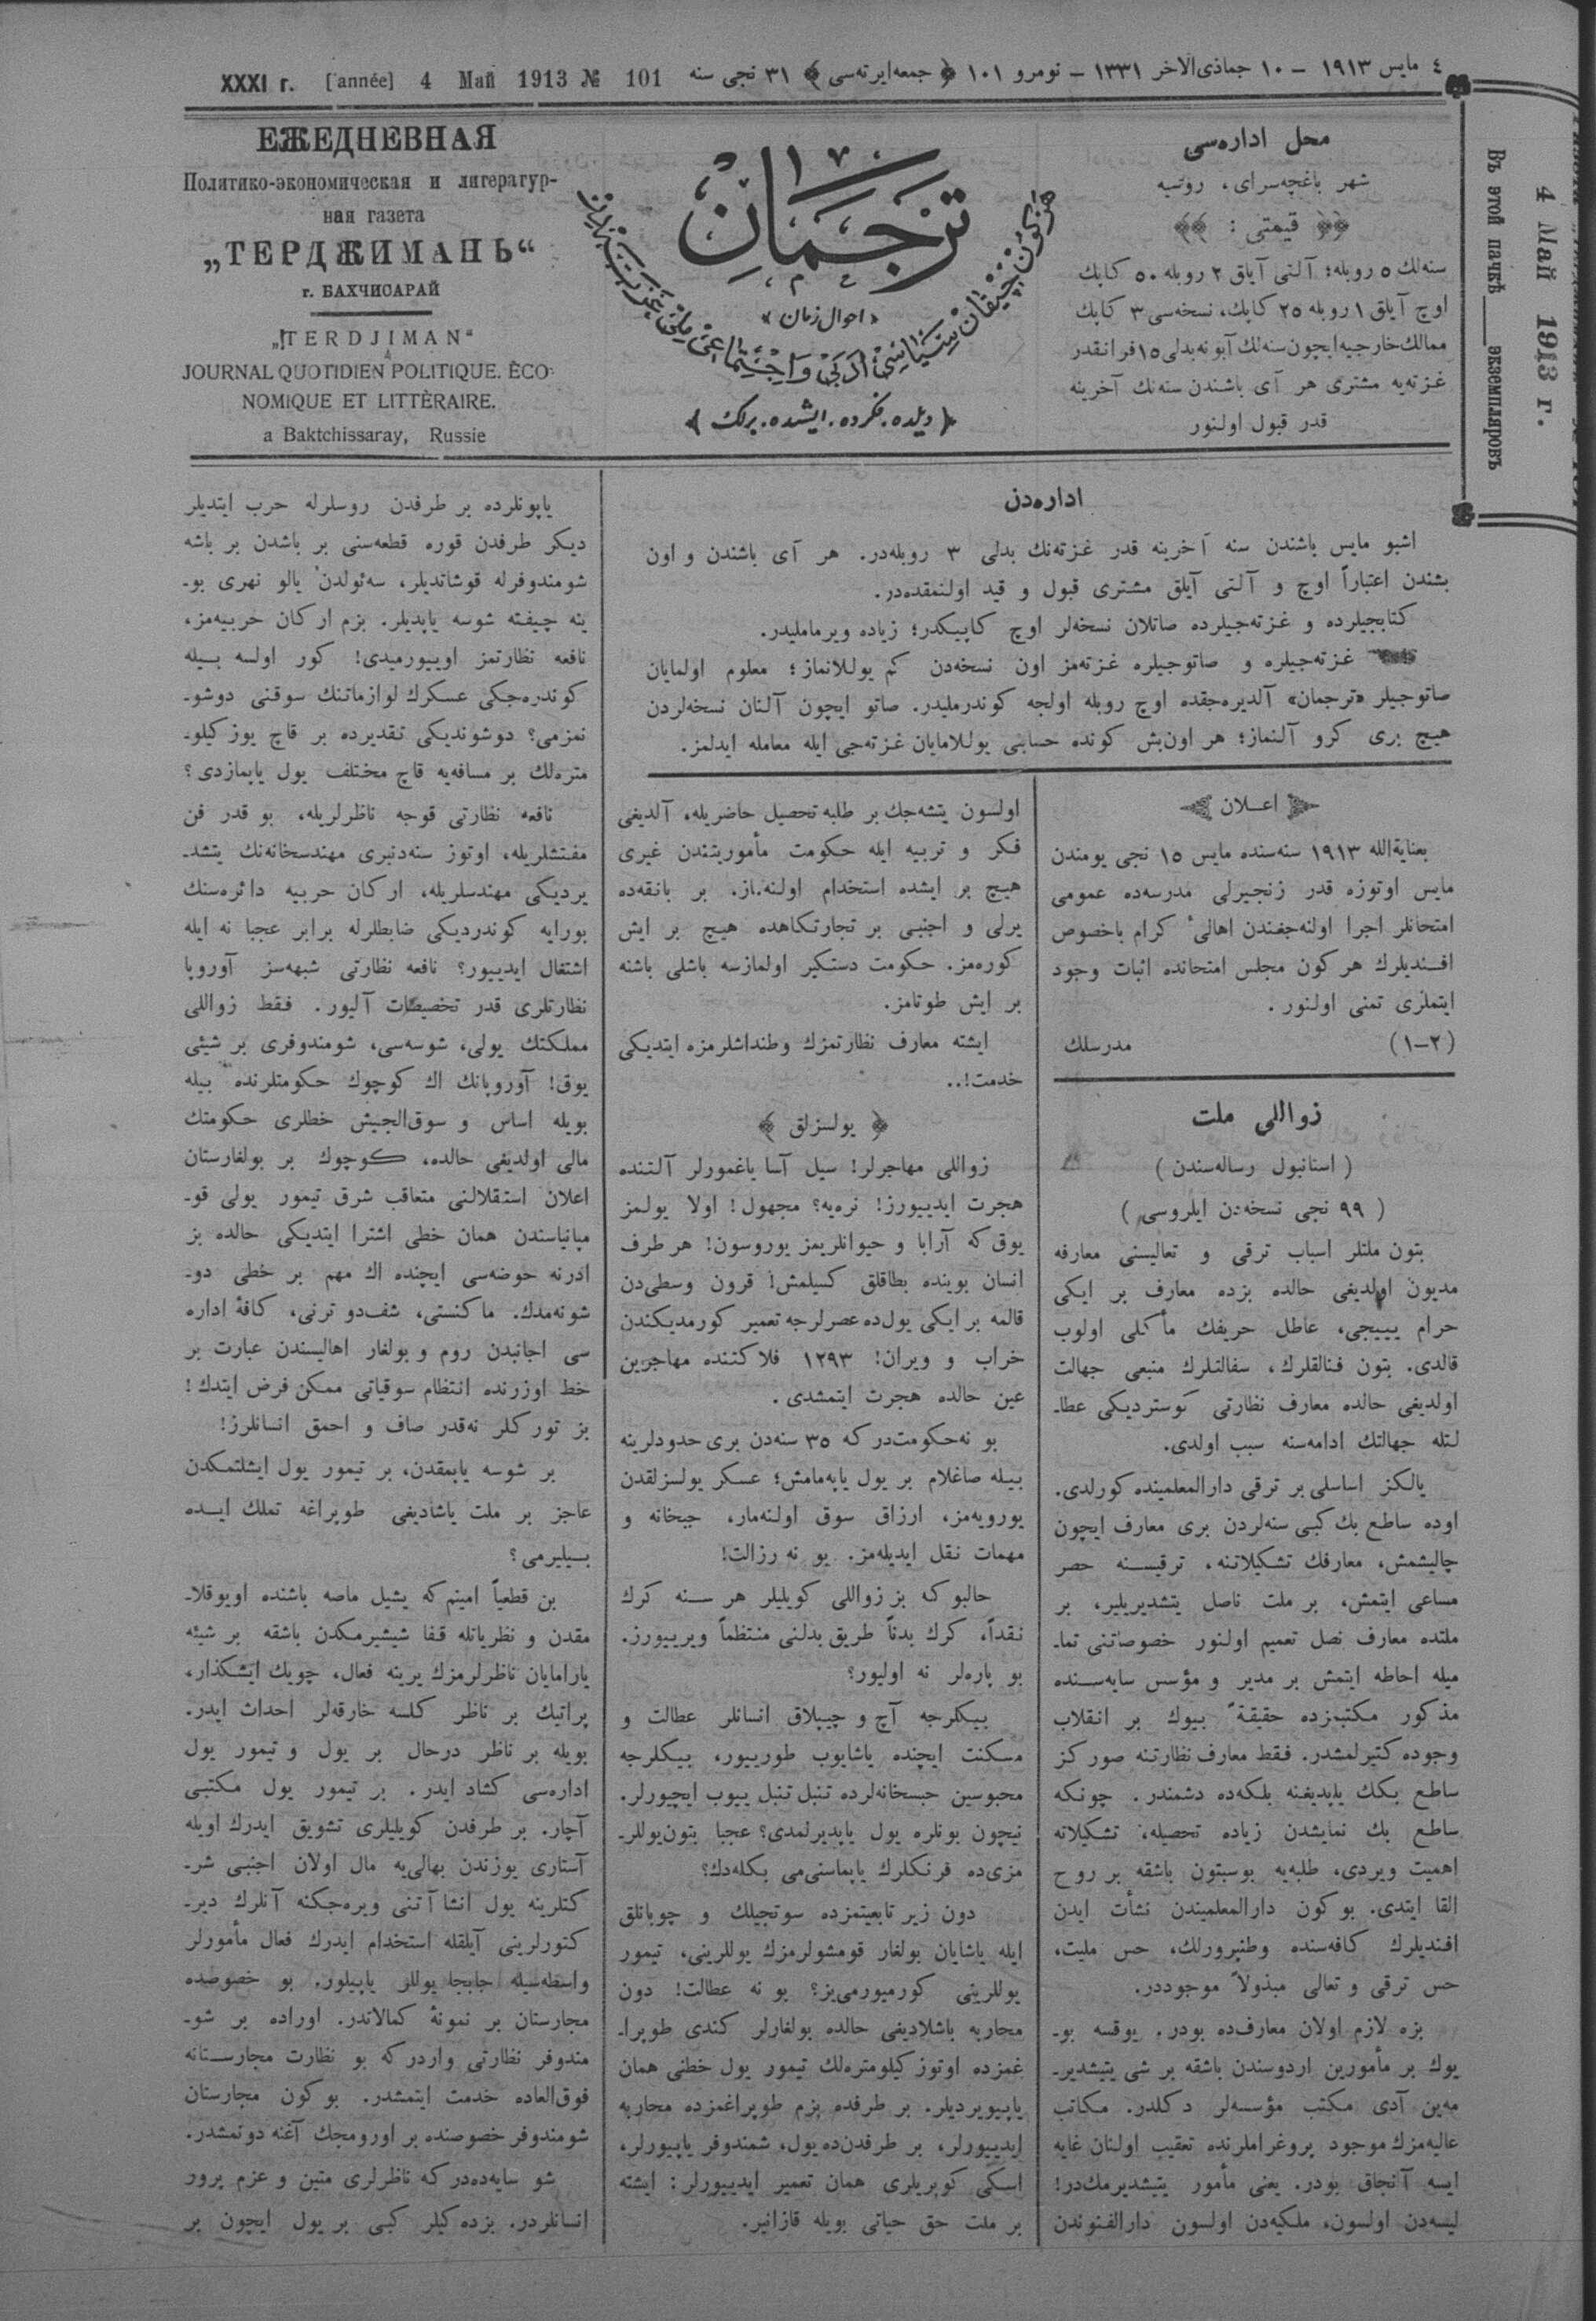 XXXI г. [année] 4 Май 1913 № 101
٤ مايس ١٩١٣ – ١٠ جماذی‌الاخر ١٣٣١ – نومرو ١٠١ ﴿ جمعه‌ايرته‌سی ﴾ ٣١ نجی سنه
ЕЖЕДНЕВНАЯ
Политико-экономическая и литератур-
ная газета
„ТЕРДЖИМАНЬ“
г. БАХЧИСАРАЙ
„TERDJIMAN“
JOURNAL QUOTIDIEN POLITIQUE. ÈCO-
NOMIQUE ET LITTÈRAIRE.
a Baktchissaray, Russie
ترجمان
﴿ احوال زمان ﴾
﴿ ديلده. فكرده. ايشده. برلك ﴾
محل اداره‌سی
شهر باغچه‌سرای، روسيه
﴿﴿ قيمتی : ﴾﴾
سنه‌لك ٥ روبله؛ آلتی آيلق ٢ روبله ٥٠ كاپك
اوچ آيلق ١ روبله ٢٥ كاپك، نسخه‌سی ٣ كاپك
ممالك خارجيه ايچون سنه‌لك آبونه بدلی ١٥ فرانقدر
غزته‌يه مشتری هر آی باشندن سنه‌نك آخرينه
قدر قبول اولنور
4 Май 1913 г.
Въ этой пачкѣ ____ экземпляровъ
اداره‌دن
اشبو مايس باشندن سنه آخرينه قدر غزته‌نك بدلی ٣ روبله‌در. هر آی باشندن و اون
بشندن اعتباراً اوچ و آلتی آيلق مشتری قبول و قيد اولنمقده‌در.
كتابجيلرده و غزته‌جيلرده صاتلان نسخه‌لر اوچ كاپيكدر؛ زياده ويرماملیدر.
غزته‌جيلره و صاتوجيلره غزته‌مز اون نسخه‌دن كم يوللانماز؛ معلوم اولمايان
صاتوجيلر «ترجمان» آلديره‌جقده اوچ روبله اولجه كوندرمليدر. صاتو ايچون آلنان نسخه‌لردن
هيچ بری كرو آلنماز؛ هر اون‌بش كونده حسابی يوللامايان غزته‌جی ايله معامله ايدلمز.
اعـلان
بعناية‌الله ١٩١٣ سنه‌سنده مايس ١٥ نجی يومندن
مايس اوتوزه قدر زنجيرلی مدرسه‌ده عمومی
امتحانلر اجرا اولنه‌جغندن اهالیٔ كرام باخصوص
افـنديلرك هر كون مجلس امتحانده اثبات وجود
ايتملری تمنی اولنور.
(٢–١) مدرسلك
زواللی ملت
( استانبول رساله‌سندن )
( ٩٩ نجی نسخه‌دن ايلروسی )
بتون ملتلر اسباب ترقی و تعاليسنی معارفه
مديون اولديغی حالده بزده معارف بر ايكی
حرام ييـيجی، عاطل حريفك مأكلی اولوب
قالدی. بتون فنالقلرك، سفالتلرك منبعی جهالت
اولديغی حالده معارف نظارتی كوسترديكی عطا-
لـتله جهالتك ادامه‌سنه سبب اولدی.
يالكز اساسلی بر ترقی دارالمعلمينده كورلدی.
اوده ساطع بك كبی سنه‌لردن بری معارف ايچون
چاليشمش، معارفك تشكيلاتنه، ترقيسـنه حصر
مساعی ايتمش، بر ملت ناصل يتشديريلير، بر
ملتده معارف نصل تعميم اولنور خصوصاتنی تما-
ميله احاطه ايتمش بر مدير و مؤسس سايه‌سـنده
مذكور مكتبمزده حقيقةً بيوك بر انقلاب
وجوده كتيرلمشدر. فـقط معارف نظارتنه صوركز
ساطع بكك ياپديغنه بلكه‌ده دشمندر. چونكه
ساطع بك نمايشدن زياده تحصيله، تشكيلاته
اهميت ويردی، طلبه‌يه بوسبتون باشقه بر روح
القا ايتدی. بوكون دارالمعلميندن نشأت ايدن
افنديلرك كافه‌سنده وطنپرورلك، حس مليت،
حس ترقی و تعالی مبذولاً موجوددر.
بزه لازم اولان معارف‌ده بودر. يوقسه بو-
يوك بر مأمورين اردوسندن باشقه بر شی يتيشدير-
مه‌ين آدی مكتب مؤسسه‌لر دكلدر. مكاتب
عاليه‌مزك موجود پروغراملرنده تعقيب اولنان غايه
ايسه آنجاق بودر. يعنی مأمور يتيشديرمك‌در!
ليسه‌دن اولسون، ملكيه‌دن اولسون دارالفنوندن
اولسون يتشه‌جك بر طلبه تحصيل حاضريله، آلديغی
فـكر و تربيه ايله حكومت مأموريتندن غيری
هيچ بر ايشده استخدام اولنه‌ماز. بر بانقه‌ده
يرلی و اجنبی بر تجارتكاهده هيچ بر ايش
كوره‌مز. حكومت دستكير اولمازسه باشلی باشنه
بر ايش طوتامز.
ايشته معارف نظارتمزك وطنداشلرمزه ايتديكی
خدمت!..
﴿ يولسزلق ﴾
زواللی مهاجرلر! سيل آسا ياغمورلر آلـتنده
هجرت ايديیورز! نره‌يه؟ مجهول! اولا يولـمز
يوق كه آرابا و حيوانلريمز يوروسون! هر طرف
انسان بوينده بطاقلق كسيلمش! قرون وسطی‌دن
قالمه بر ايكی يول‌ده عصرلرجه تعمير كورمديكندن
خراب و ويران! ١٢٩٣ فلاكتنده مهاجرين
عين حالده هجرت ايتمشدی.
بو نه‌حكومت‌در كه ٣٥ سنه‌دن بری حدودلرينه
بيله صاغلام بر يول ياپه‌مامش؛ عسكر يولسزلقدن
يورويه‌مز، ارزاق سوق اولنه‌مار، جبخانه و
مهمات نقل ايديله‌مز. بو نه رزالت!
حالبوكه بز زواللی كويليلر هر سـنه كرك
نقداً، كرك بدناً طريق بدلنی منتظماً ويرييورز.
بو پاره‌لر نه اوليور؟
بيكلرجه آچ و چيپلاق انسانلر عطالت و
مسكنت ايچنده ياشايوب طورييور، بيكلرجه
محبوسين حبسخانه‌لرده تنبل تنبل ييوب ايچيورلر.
نيچون بونلره يول ياپديرلمدی؟ عجبا بتون‌يوللر-
مزی‌ده فرنكلرك ياپماسنی‌می بكله‌دك؟
دون زير تابعيتمزده سوتجيلك و چوبانلق
ايله ياشايان بولغار قومشولرمزك يوللرينی، تيمور
يوللرينی كورميورمی‌يز؟ بو نه عطالت! دون
محاربه باشلاديغی حالده بولغارلر كندی طوپرا-
غمزده اوتوز كيلومتره‌لك تيمور يول خطنی همان
ياپيويرديلر. بر طرفده بزم طوپراغمزده محاربه
ايدييورلر، بر طرفدن‌ده يول، شمندوفر ياپيورلر،
اسكی كوپريلری همان تعمير ايدييورلر: ايشته
بر ملت حق حياتی بويله قازانير.
ياپونلرده بر طرفدن روسلرله حرب ايتديلر
ديكر طرفدن قوره قطعه‌سنی بر باشدن بر باشه
شومندوفرله قوشاتديلر، سه‌ئولدن يالو نهری بو-
ينه چيفته شوسه ياپديلر. بزم اركان حربيه‌مز،
نافعه نظارتمز اوييورميدی! كور اولسه بـيله
كوندره‌جكی عسكرك لوازماتنك سوقنی دوشو-
نمزمی؟ دوشونديكی تقديرده بر قاچ يوز كيلو-
متره‌لك بر مسافه‌يه قاچ مختلف يول ياپمازدی؟
نافعه نظارتی قوجه ناظرلريله، بو قدر فن
مفتشلريله، اوتوز سنه‌دنبری مهندسخانه‌نك يتشد-
يرديكی مهندسلريله، اركان حربيه دائره‌سنك
بورايه كوندرديكی ضابطلرله برابر عجبا نه ايله
اشتغال ايديیور؟ نافعه نظارتی شبهه‌سز آوروپا
نظارتلری قدر تخصيصات آليور. فـقط زواللی
مملكتك يولی، شوسه‌سی، شومندوفری بر شيئی
يوق! آوروپانك اك كوچوك حكومتلرنده بيله
بويله اساس و سوق‌الجيش خطلری حكومتك
مالی اولديغی حالده، كوچوك بر بولغارستان
اعلان استقلالنی متعاقب شرق تيمور يولی قو-
مپانياسندن همان خطی اشترا ايتديكی حالده بز
ادرنه حوضه‌سی ايچنده اك مهم بر خطی دو-
شونه‌مدك. ماكنستی، شف‌دو ترنی، كافهٔ اداره
سی اجانبدن روم و بولغار اهاليسندن عبارت بر
خط اوزرنده انتظام سوقياتی ممكن فرض ايتدك!
بز توركلر نه‌قدر صاف و احمق انسانلرز!
بر شوسه ياپمقدن، بر تيمور يول ايشلتمـكدن
عاجز بر ملت ياشاديغی طوپراغه تملك ايـده
بـيليرمی؟
بن قطعياً امينم كه يشيل ماصه باشنده اويوقلا-
مقدن و نظرياتله قفا شيشيرمكدن باشقه بر شيئه
يارامايان ناظرلرمزك يرينه فعال، چويك ايشكذار،
پراتيك بر ناظر كلسه خارقه‌لر احداث ايدر.
بويله بر ناظر درحال بر يول و تيمور يول
اداره‌سی كشاد ايدر. بر تيمور يول مكتبی
آچار. بر طرفدن كويليلری تشويق ايدرك اويله
آستاری يوزندن بهالی‌يه مال اولان اجنبی شر-
كتلرينه يول انشا آتنی ويره‌جكنه آنلرك دير-
كتورلرينی آيلقله استخدام ايدرك فعال مأمورلر
واسطه‌سيله جابجا يوللر ياپيلور. بو خصوصده
مجارستان بر نمونهٔ كمالاتدر. اوراده بر شو-
مندوفر نظارتی واردر كه بو نظارت مجارسـتانه
فوق‌العاده خدمت ايتمشدر. بوكون مجارستان
شومندوفر خصوصنده بر اورومجك آغنه دونمشدر.
شو سايه‌ده‌در كه ناظرلری متين و عزم پرور
انسانلردر. بزده‌كيلر كبی بر يول ايچون بر